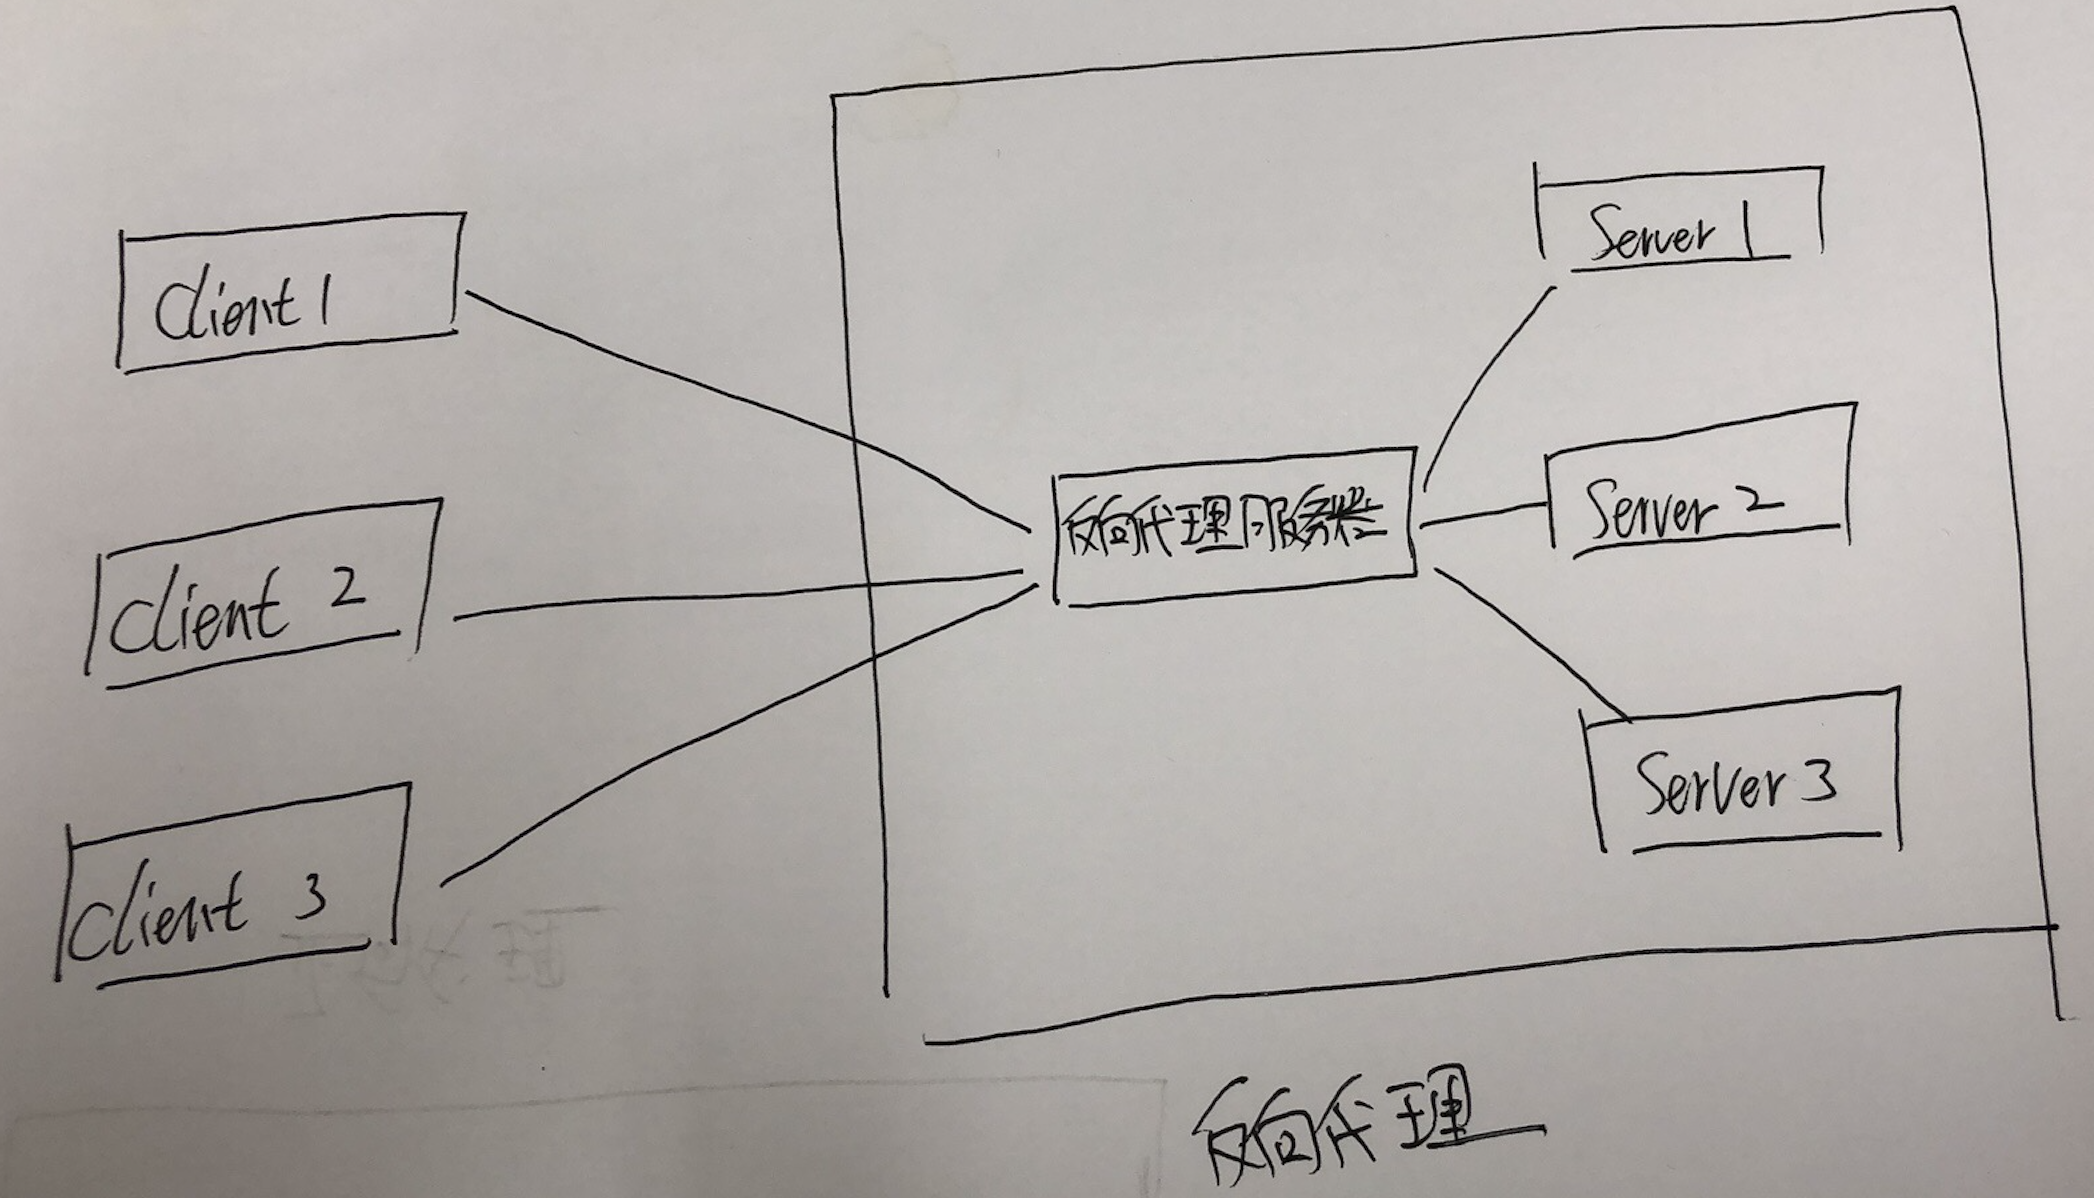 Client 1
Client 2
Client 3
反向代理服务器
Server 1
Server 2
Server 3
反向代理